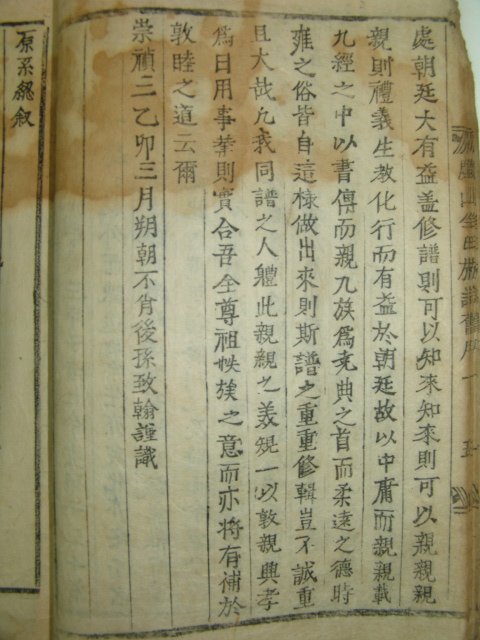 處朝廷大有益盖修譜則可以知來知來則可以親親親
親則禮義生教化行而有益於朝廷故以中庸而親親載
九經之中以書傳而親九族爲堯典之首而柔遠之德時
雍之俗皆自這樣做出來則斯譜之重重修輯豈不誠重
且大哉凡我同譜之人軆此親親之義䂓一以敦親興孝
爲日用事業則實合吾全尊祖收族之意而亦將有補於
敦睦之道云爾
崇禎三乙卯三月朔朝不肖後孫致翰謹識
原系緫叙